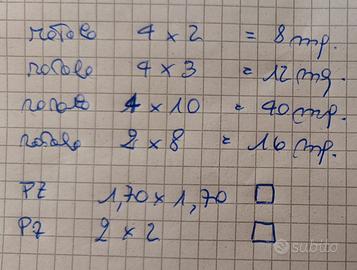 rotolo 4 x 2 = 8 mq.
rotolo 4 x 3 = 12 mq.
rotolo 4 x 10 = 40 mq.
rotolo 2 x 8 = 16 mq.
PZ 1,70 x 1,70 □
PZ 2 x 2 □
subito